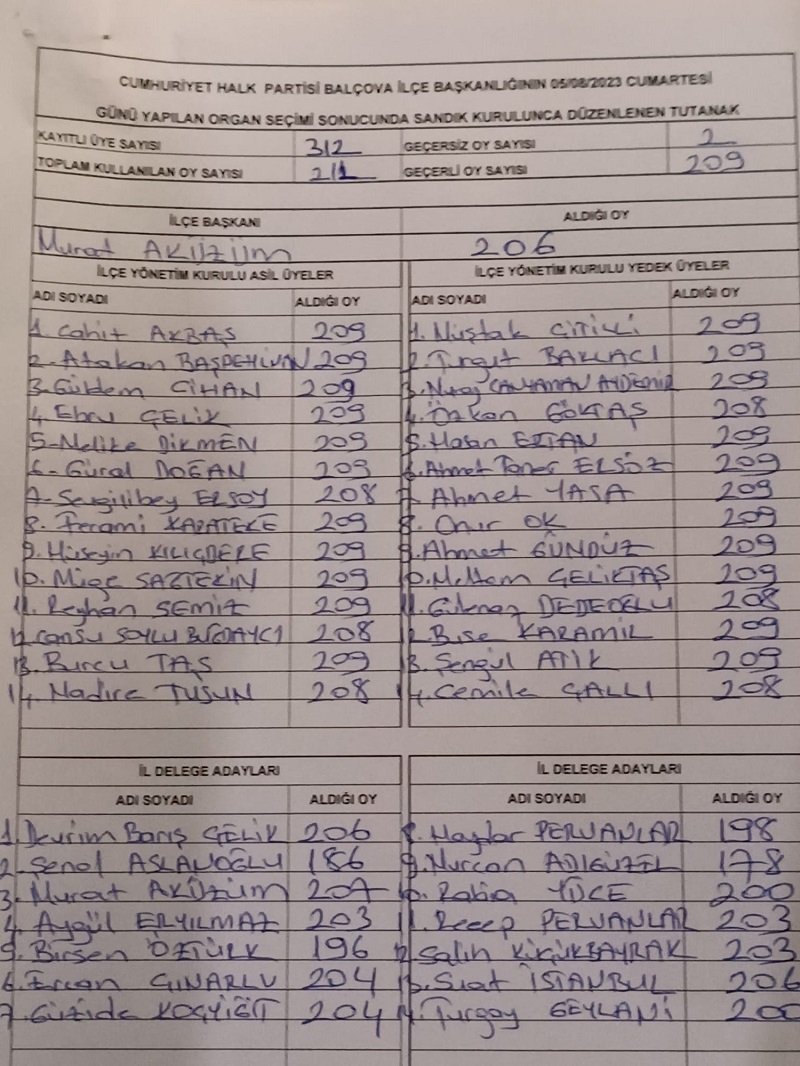 CUMHURİYET HALK PARTİSİ BALÇOVA İLÇE BAŞKANLIĞININ 05/08/2023 CUMARTESİ
GÜNÜ YAPILAN ORGAN SEÇİMİ SONUCUNDA SANDIK KURULUNCA DÜZENLENEN TUTANAK
KAYITLI ÜYE SAYISI 312 GEÇERSİZ OY SAYISI 2
TOPLAM KULLANILAN OY SAYISI 211 GEÇERLİ OY SAYISI 209
İLÇE BAŞKANI ALDIĞI OY
Murat AKÜZÜM 206
İLÇE YÖNETİM KURULU ASİL ÜYELER İLÇE YÖNETİM KURULU YEDEK ÜYELER
ADI SOYADI ALDIĞI OY ADI SOYADI ALDIĞI OY
1. Cahit AKBAŞ 209 1. Müştak 209
2. Atakan BAŞPEHLİVAN 209 2. Turgut BAKLACI 209
3. Güldem CİHAN 209 3. Nuray CANYAMAN AYDEMİR 209
4. Ebru ÇELİK 209 4. Özkan GÖKTAŞ 208
5. Melike DİKMEN 209 5. Hasan 209
6. Güral DOĞAN 209 6. Ahmet Taner ELSÖZ 209
7. Sevgilibey ERSOY 208 7. Ahmet YASA 209
8. Ferami KARATEKE 209 8. Onur OK 209
9. Hüseyin KILIÇDERE 209 9. Ahmet GÜNDÜZ 209
10. Müge SAZTEKİN 209 10. Meltem ÇELİKTAŞ 209
11. Reyhan SEMİZ 209 11. Gülenaz DEDEOĞLU 208
12. Cansu SOYLU BUĞDAYCI 208 12. Buse KARAMIK 209
13. Burcu TAŞ 209 13. Şengül ATİK 209
14. Nadire TUSUN 208 14. Cemile ÇALLI 208
İL DELEGE ADAYLARI İL DELEGE ADAYLARI
ADI SOYADI ALDIĞI OY ADI SOYADI ALDIĞI OY
1. Devrim Barış ÇELİK 206 8. Haydar PERVANLAR 198
2. Şenol ASLANOĞLU 186 9. Nurcan ADIGÜZEL 178
3. Murat AKÜZÜM 207 10. Rabia YÜCE 200
4. Aygül ERYILMAZ 203 11. Recep PERVANLAR 203
5. Birsen ÖZTÜRK 196 12. Salih KÜÇÜKBAYRAK 203
6. Ercan ÇINARLI 204 13. Suat İSTANBUL 206
7. Güzide KOÇYİĞİT 204 14. Turgay GEYLANİ 200